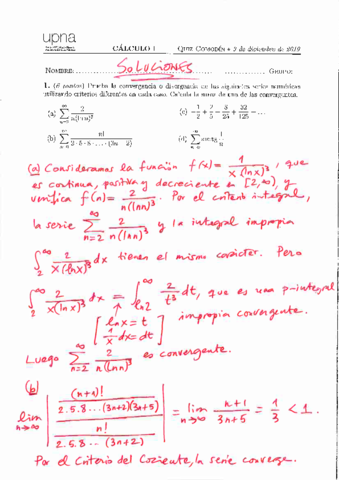 upna
CÁLCULO I
Quiz Consolén • 3 de diciembre de 2019
NOMBRE: SOLUCIONES GRUPO:
1. (6 puntos) Prueba la convergencia o divergencia de las siguientes series numéricas
utilizando criterios diferentes en cada caso. Calcula la suma de una de las convergentes.
(a) ∑ 2/(n(ln n)³)
(b) ∑ n!/(2·5·8···(3n−2))
(c) −1/2 + 2/5 − 8/25 + 32/125 − ···
(d) ∑ arctg 1/n
(a) Consideramos la función f(x) = 1/(x(ln x)³), que
es continua, positiva y decreciente en [2,∞), y
verifica f(n) = 2/(n(ln n)³). Por el criterio integral,
la serie ∑_{n=2}^∞ 2/(n(ln n)³) y la integral impropia
∫_2^∞ 2/(x(ln x)³) dx tienen el mismo carácter. Pero
∫_2^∞ 2/(x(ln x)³) dx = ∫_{ln 2}^∞ 2/t³ dt, que es una p-integral
[ln x = t
1/x dx = dt] impropia convergente.
Luego ∑_{n=2}^∞ 2/(n(ln n)³) es convergente.
(b)
lim_{n→∞} |((n+1)!/(2.5.8...(3n+2)(3n+5)))/(n!/(2.5.8...(3n+2)))| = lim_{n→∞} (n+1)/(3n+5) = 1/3 < 1.
Por el Criterio del Cociente, la serie converge.